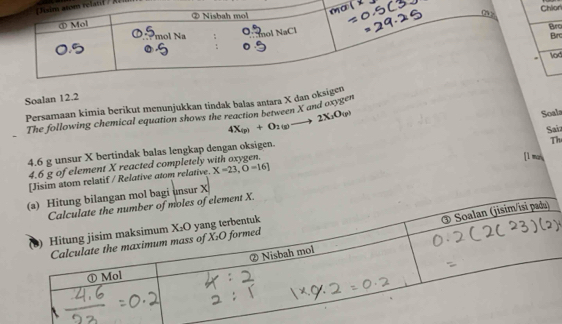 ① Mol
② Nisbah mol
0.5
0.5 mol Na : 0.5 mol NaCl
0.5 : 0.5
= 29.25
Soalan 12.2
Persamaan kimia berikut menunjukkan tindak balas antara X dan oksigen
The following chemical equation shows the reaction between X and oxygen
4X(p) + O2 (g) → 2X2O(p)
4.6 g unsur X bertindak balas lengkap dengan oksigen.
4.6 g of element X reacted completely with oxygen.
[Jisim atom relatif / Relative atom relative. X =23, O =16]
(a) Hitung bilangan mol bagi unsur X
Calculate the number of moles of element X.
Hitung jisim maksimum X2O yang terbentuk
Calculate the maximum mass of X2O formed
① Mol
② Nisbah mol
③ Soalan (jisim/isi padu)
4.6
23
= 0.2
4 : 2
2 : 1
0.2 (2(23)
=